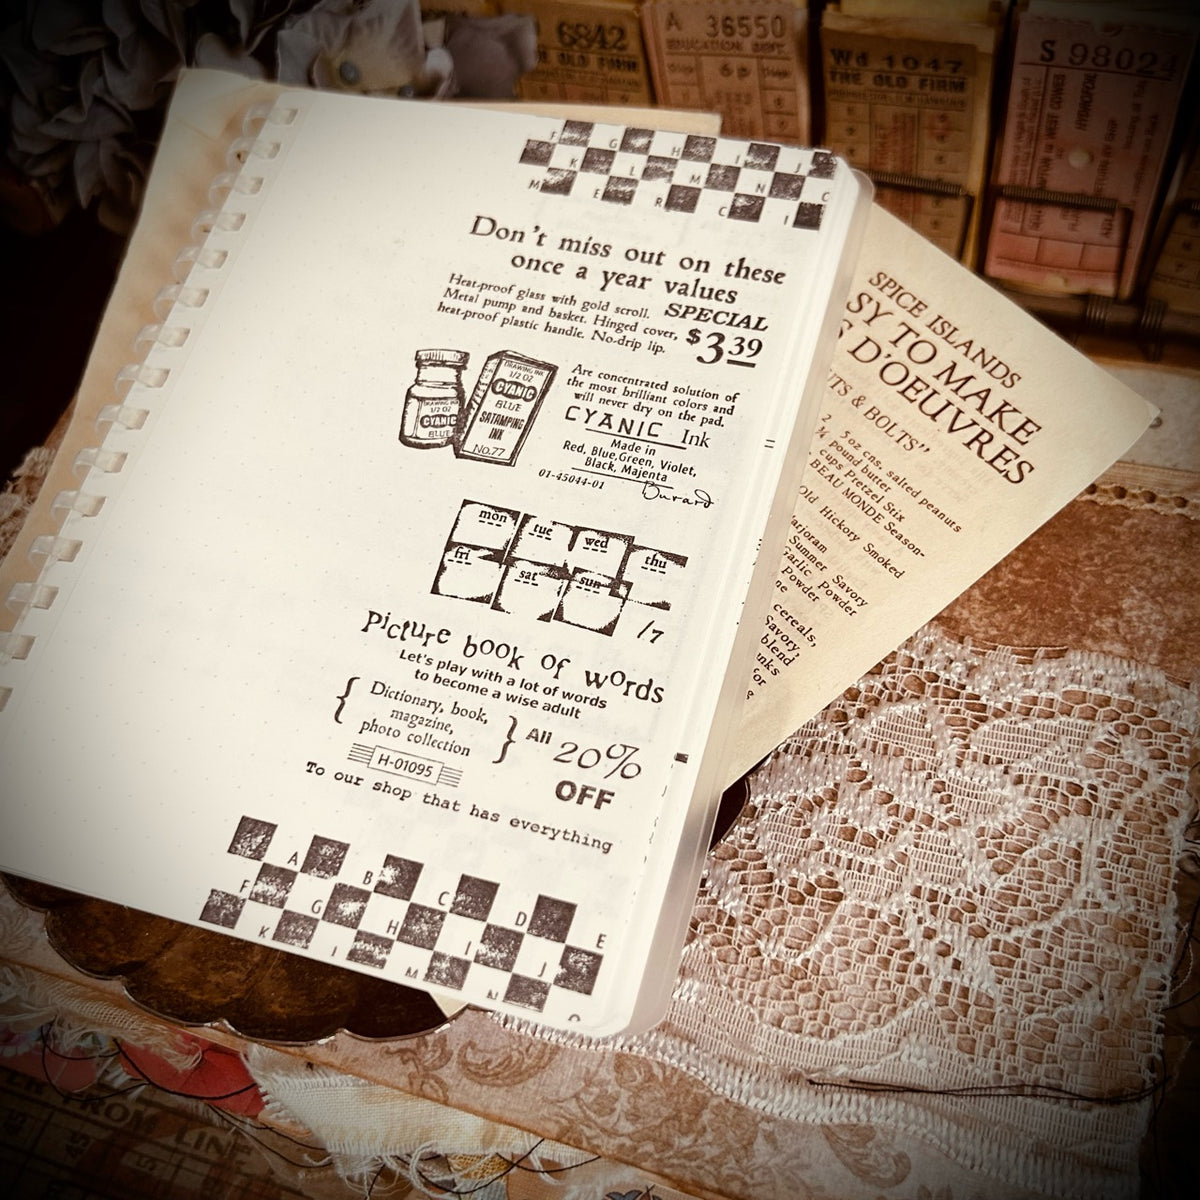 6842
THE OLD FIRM
A 36550
EDUCATION DEPT.
6p
Wd 1047
THE OLD FIRM
S 98024
HYDROFOIL
F G H I J
K L M N
M E R C I
Don't miss out on these
once a year values
Heat-proof glass with gold scroll.
Metal pump and basket. Hinged cover,
heat-proof plastic handle. No-drip lip.
SPECIAL
$3.39
DRAWING INK
1/2 OZ
CYANIC
BLUE
DRAWING INK
1/2 OZ
CYANIC
BLUE
SATAMPING
INK
No.77
Are concentrated solution of
the most brilliant colors and
will never dry on the pad.
CYANIC Ink
Made in
Red, Blue,Green, Violet,
Black, Majenta
01-45044-01
mon tue wed thu
fri sat sun
/7
Picture book of words
Let's play with a lot of words
to become a wise adult
{ Dictionary, book,
magazine,
photo collection }
All 20%
OFF
H-01095
To our shop that has everything
A B C D E
F G H I J
K
SPICE ISLANDS
SY TO MAKE
S D'OEUVRES
TS & BOLTS"
2 5 oz cns. salted peanuts
¼ pound butter
cups Pretzel Stix
BEAU MONDE Season-
Old Hickory Smoked
arjoram
Summer Savory
Garlic Powder
Powder
ne
cereals,
Savory,
blend
FROM LINE
45